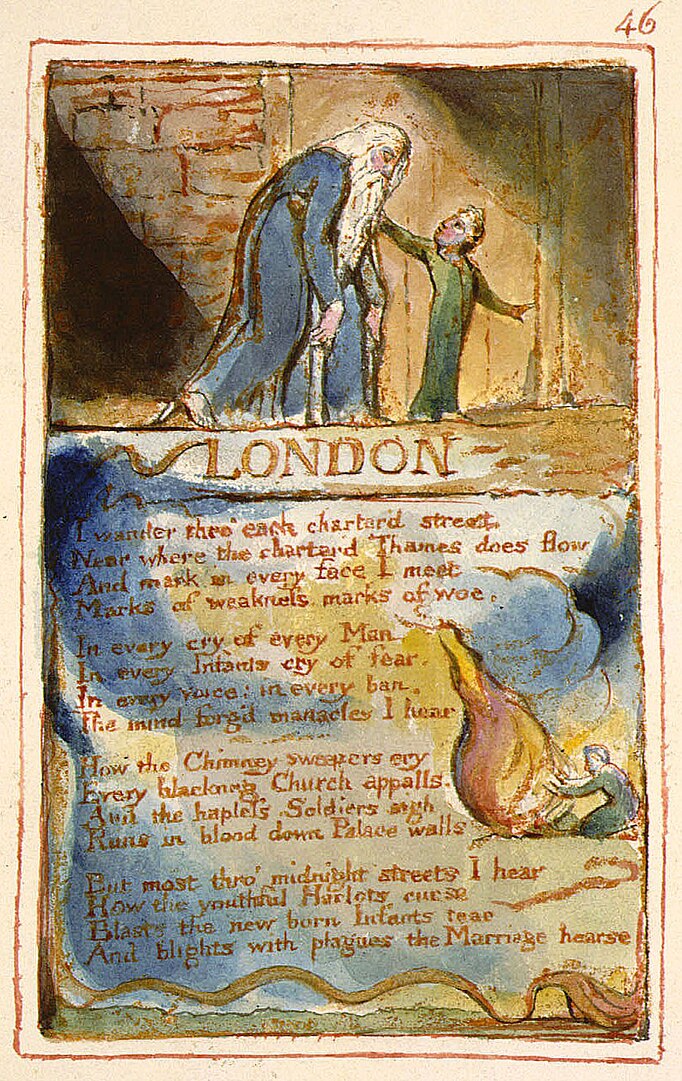 46
LONDON
I wander thro' each charter'd street,
Near where the charter'd Thames does flow
And mark in every face I meet
Marks of weakness, marks of woe.
In every cry of every Man,
In every Infants cry of fear,
In every voice; in every ban,
The mind-forg'd manacles I hear
How the Chimney-sweepers cry
Every blackning Church appalls,
And the hapless Soldiers sigh
Runs in blood down Palace walls
But most thro' midnight streets I hear
How the youthful Harlots curse
Blasts the new-born Infants tear
And blights with plagues the Marriage hearse